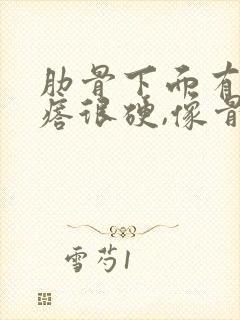 肋骨下面有
痞很硬,像骨
雪芍1